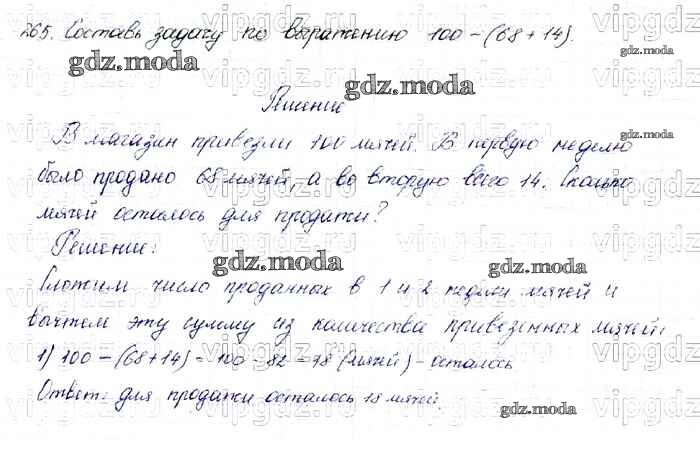 265. Составь задачу по выражению 100 - (68 + 14).
Решение
В магазин привезли 100 мячей. В первую неделю
было продано 68 мячей, а во вторую всего 14. Сколько
мячей осталось для продажи?
Решение:
Сложим число проданных в 1 и 2 недели мячей и
вычтем эту сумму из количества привезенных мячей:
1) 100 - (68 + 14) = 100 - 82 = 18 (мячей) - осталось
Ответ: для продажи осталось 18 мячей.
gdz.moda
gdz.moda
gdz.moda
gdz.moda
gdz.moda
gdz.moda
gdz.moda
gdz.moda
vipgdz